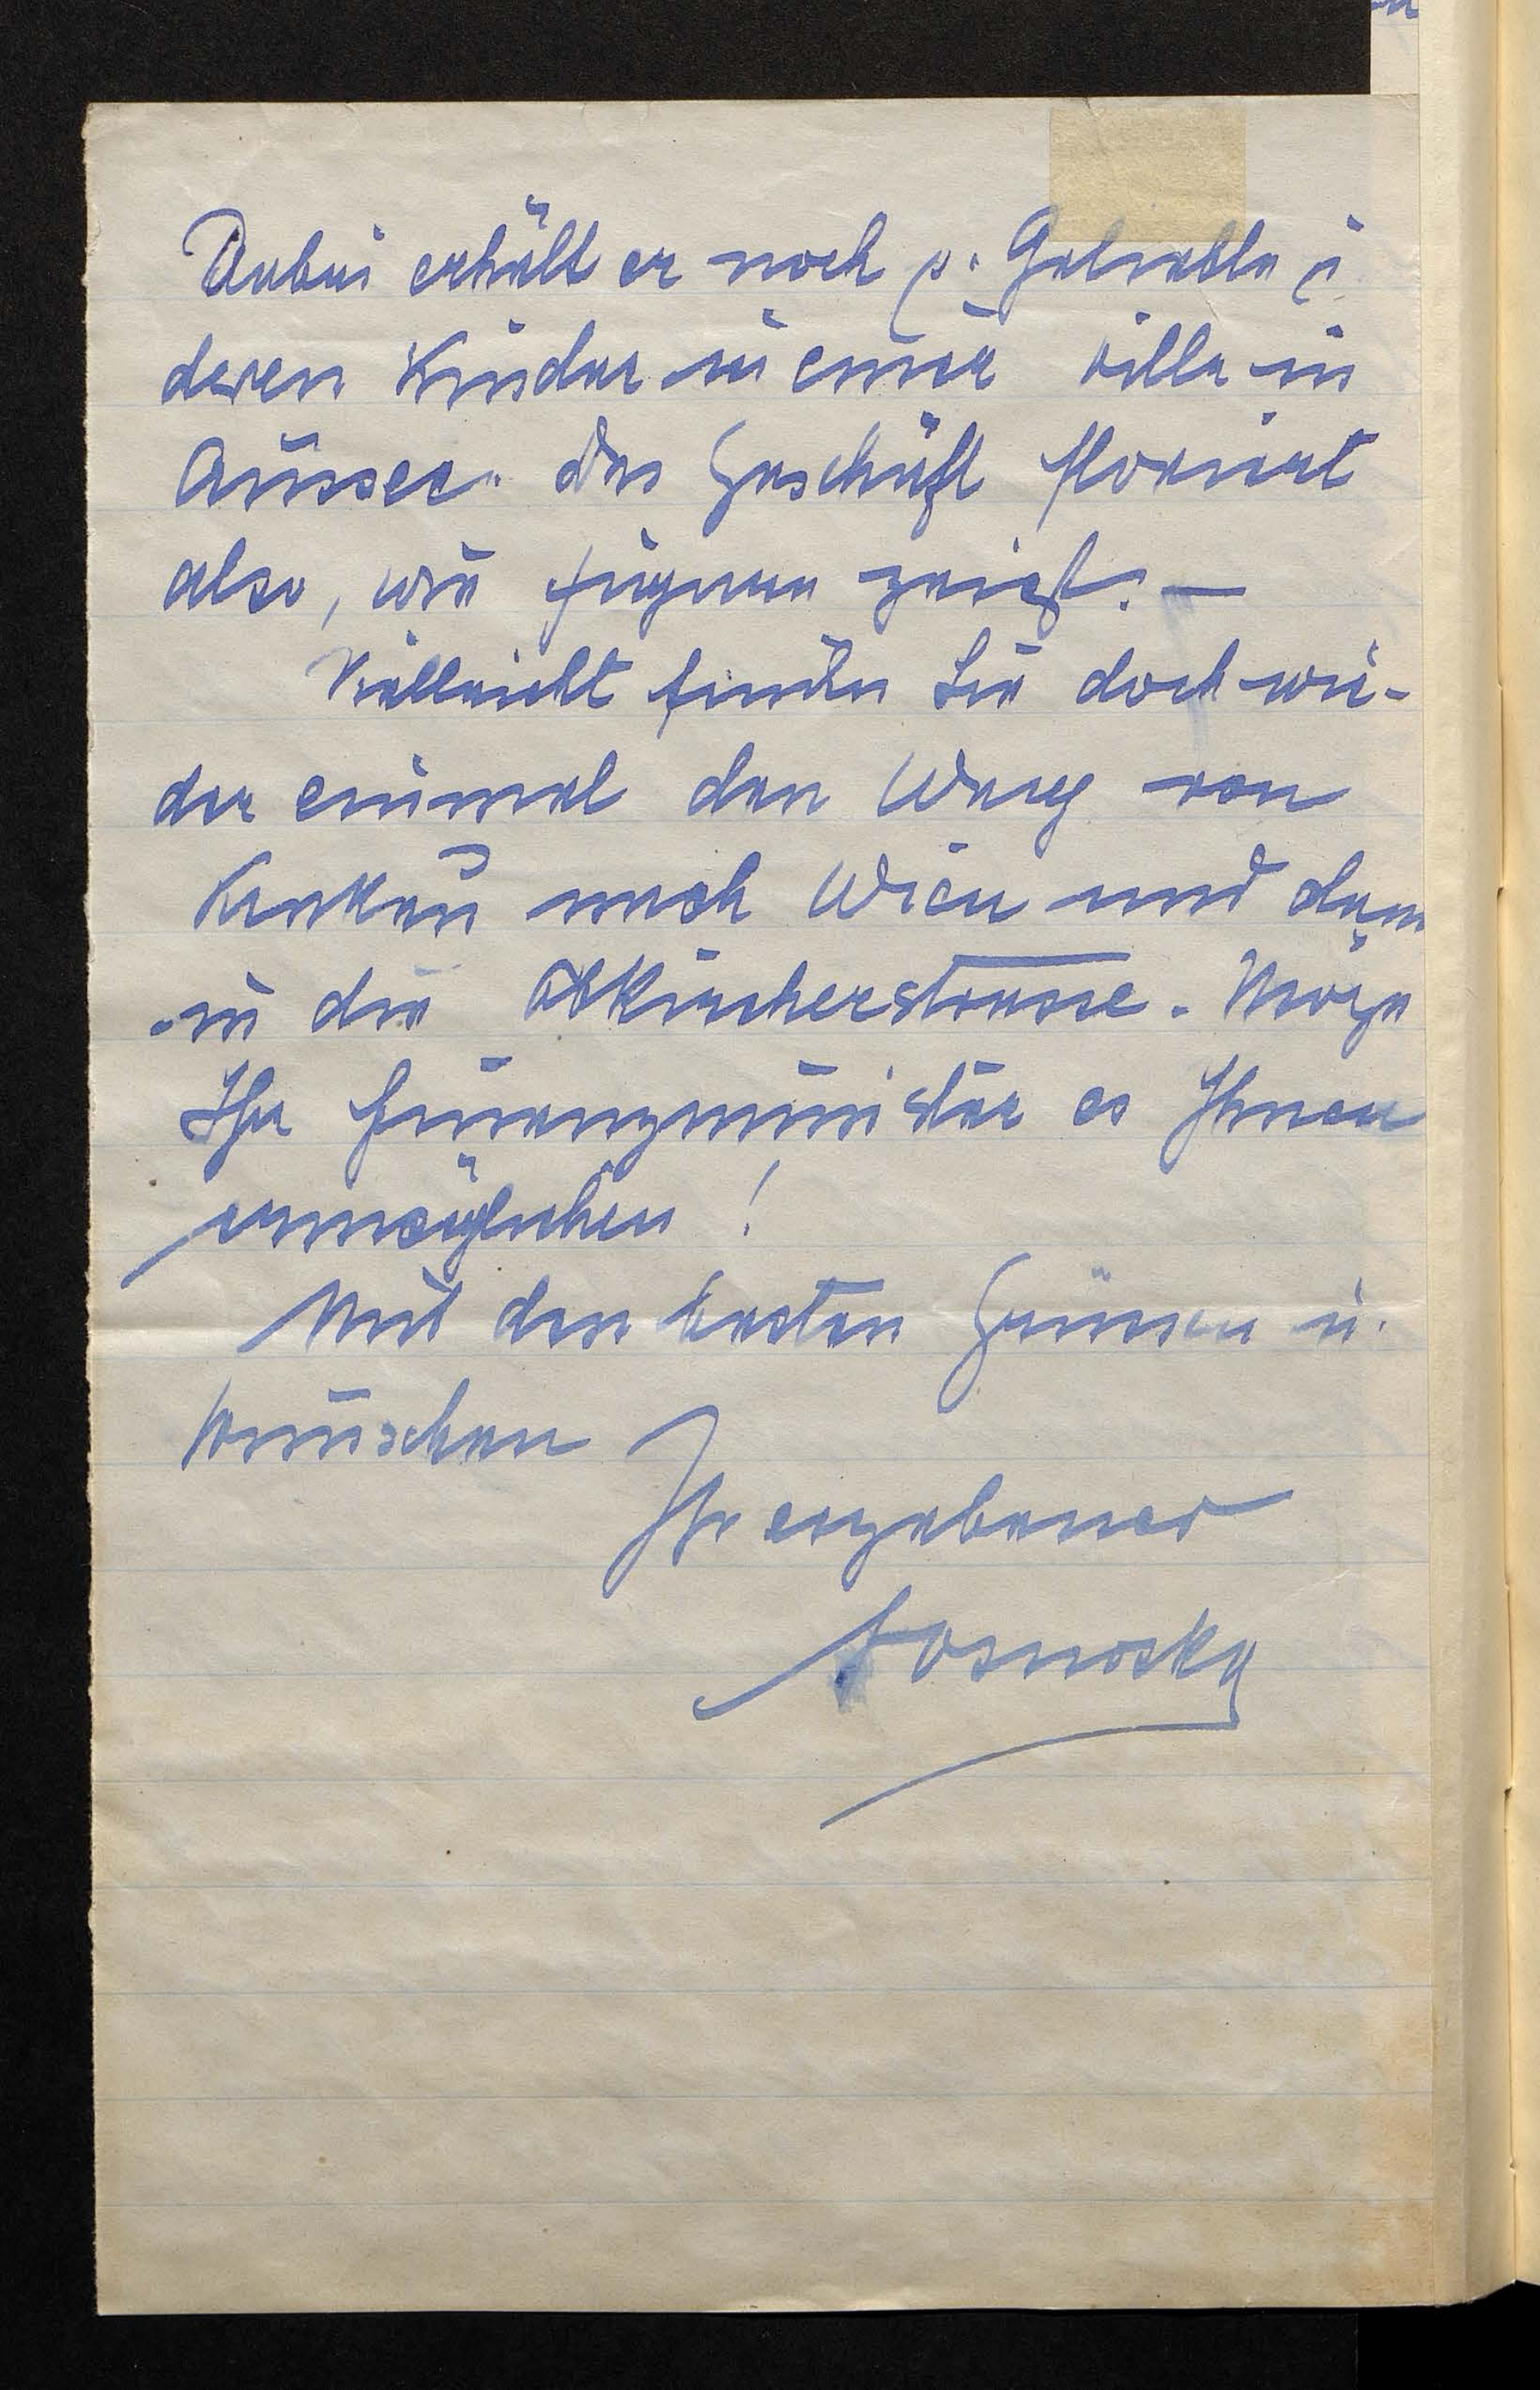 Dabei erhält er noch s. Geliebte u.
deren Kinder in einer Villa in
Aussee. Das Geschäft floriert
also, wie figura zeigt. —
Vielleicht finden Sie doch wie-
der einmal den Weg von
Krakau nach Wien und dann
in die Obkircherstrasse. Möge
Ihr Finanzminister es Ihnen
ermöglichen!
Mit den besten Grüssen u.
Wünschen
Ihr ergebener
Sosnosky